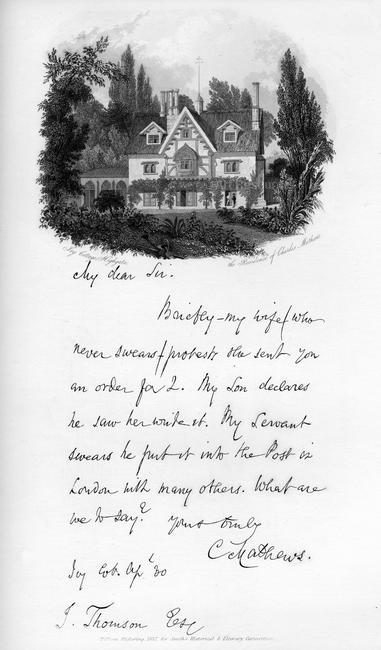 Ivy Cottage, Highgate, the Residence of Charles Mathews
My dear Sir.
Briefly - my wife (who
never swears) protests she sent you
an order for 2. My Son declares
he saw her write it. My Servant
swears he put it into the Post in
London with many others. What are
we to say? yours truly
C Mathews.
Ivy Cot. Apl 30
J. Thomson Esq
for Smith's Historical & Literary Curiosities